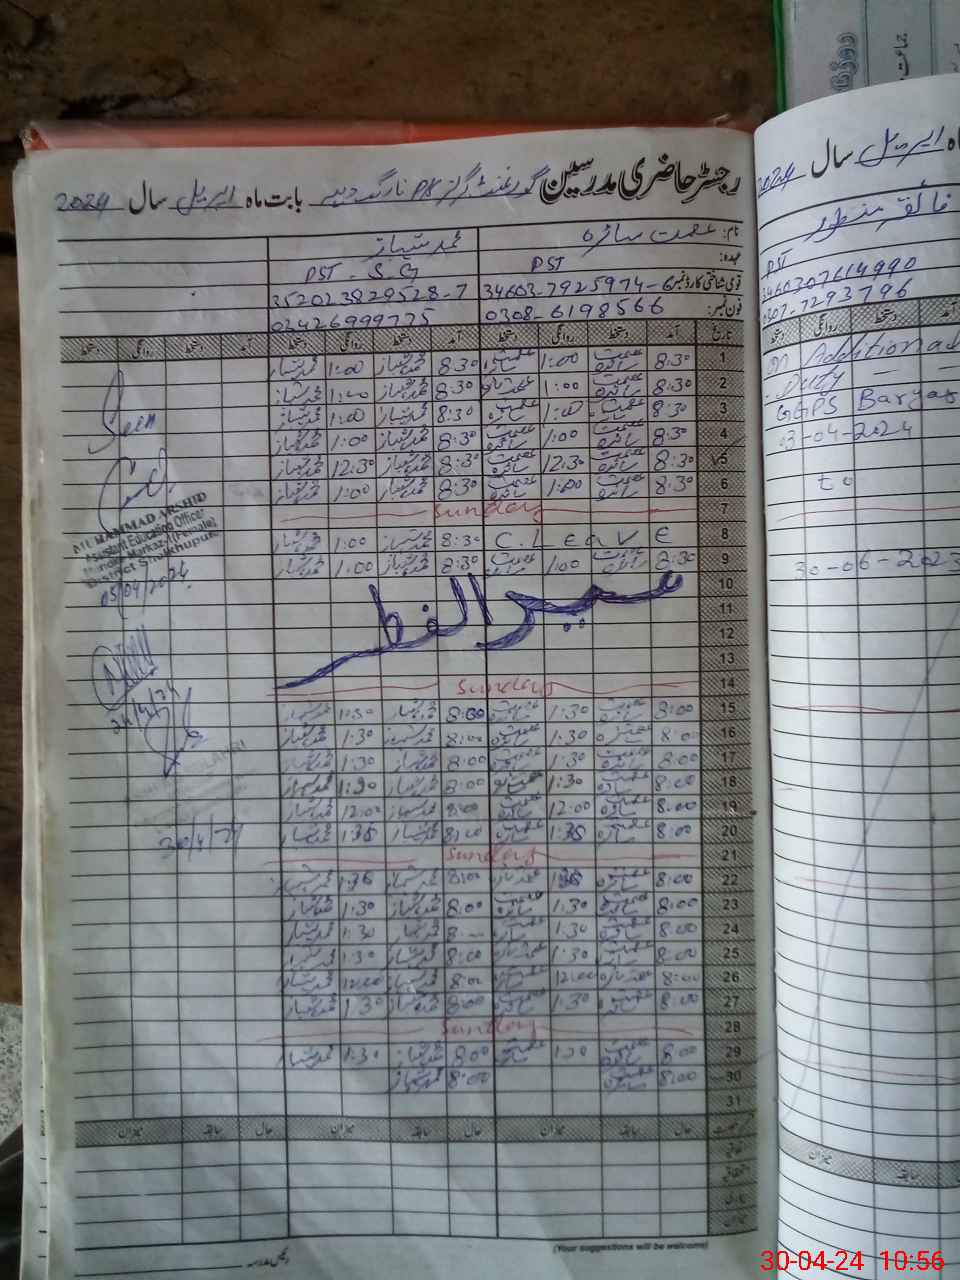 رجسٹر حاضری مدرسین گورنمنٹ گرلز P/S نارنگ بابت ماہ اپریل سال 2024
نام: عصمت سائرہ محمد شہباز
عہدہ: PST PST - S.G
قومی شناختی کارڈ نمبر 34603-7925974-6 352023829528-7
فون نمبر: 0308-6198566 03426999775
تاریخ آمد دستخط روانگی دستخط آمد دستخط روانگی دستخط آمد دستخط روانگی دستخط
1 8:30 عصمت سائرہ 1:00 عصمت سائرہ 8:30 محمد شہباز 1:00 محمد شہباز
2 8:30 عصمت سائرہ 1:00 عصمت سائرہ 8:30 محمد شہباز 1:00 محمد شہباز
3 8:30 عصمت سائرہ 1:00 عصمت سائرہ 8:30 محمد شہباز 1:00 محمد شہباز
4 8:30 عصمت سائرہ 1:00 عصمت سائرہ 8:30 محمد شہباز 1:00 محمد شہباز
5 8:30 عصمت سائرہ 12:30 عصمت سائرہ 8:30 محمد شہباز 12:30 محمد شہباز
6 8:30 عصمت سائرہ 1:00 عصمت سائرہ 8:30 محمد شہباز 1:00 محمد شہباز
7 Sunday
8 C.LEAVE 8:30 محمد شہباز 1:00 محمد شہباز
9 8:30 عصمت سائرہ 1:00 عصمت سائرہ 8:30 محمد شہباز 1:00 محمد شہباز
10
11 عید الفطر
12
13
14 Sunday
15 8:00 عصمت سائرہ 1:30 عصمت سائرہ 8:00 محمد شہباز 1:30 محمد شہباز
16 8:00 عصمت سائرہ 1:30 عصمت سائرہ 8:00 محمد شہباز 1:30 محمد شہباز
17 8:00 عصمت سائرہ 1:30 عصمت سائرہ 8:00 محمد شہباز 1:30 محمد شہباز
18 8:00 عصمت سائرہ 1:30 عصمت سائرہ 8:00 محمد شہباز 1:30 محمد شہباز
19 8:00 عصمت سائرہ 12:00 عصمت سائرہ 8:00 محمد شہباز 12:00 محمد شہباز
20 8:00 عصمت سائرہ عصمت سائرہ 8:00 محمد شہباز محمد شہباز
21 Sunday
22 8:00 عصمت سائرہ عصمت سائرہ 8:00 محمد شہباز محمد شہباز
23 8:00 عصمت سائرہ 1:30 عصمت سائرہ 8:00 محمد شہباز 1:30 محمد شہباز
24 8:00 عصمت سائرہ 1:30 عصمت سائرہ محمد شہباز 1:30 محمد شہباز
25 8:00 عصمت سائرہ 1:30 عصمت سائرہ 8:00 محمد شہباز 1:30 محمد شہباز
26 8:00 عصمت سائرہ 12:00 عصمت سائرہ 8:00 محمد شہباز 12:00 محمد شہباز
27 8:00 عصمت سائرہ 1:30 عصمت سائرہ 8:00 محمد شہباز 1:30 محمد شہباز
28 Sunday
29 8:00 عصمت سائرہ 1:30 عصمت سائرہ 8:00 محمد شہباز 1:30 محمد شہباز
30 8:00 عصمت سائرہ 8:00 محمد شہباز
31
حال سابقہ میزان حال سابقہ میزان حال سابقہ میزان
رئیس مدرسہ
(Your suggestions will be welcome)
Seen
MUHAMMAD ARSHID
Assistant Education Officer
Markaz (Female)
District Sheikhupura
05/04/2024
24/4/24
30/4/24
ماہ اپریل سال 2024
فائقہ منظور
PST
3460307614990
0307-7293796
آمد دستخط روانگی دستخط
On Additional
Duty
GGPS Baryar
03-04-2024
to
30-06-2023
سابقہ میزان
30-04-24 10:56